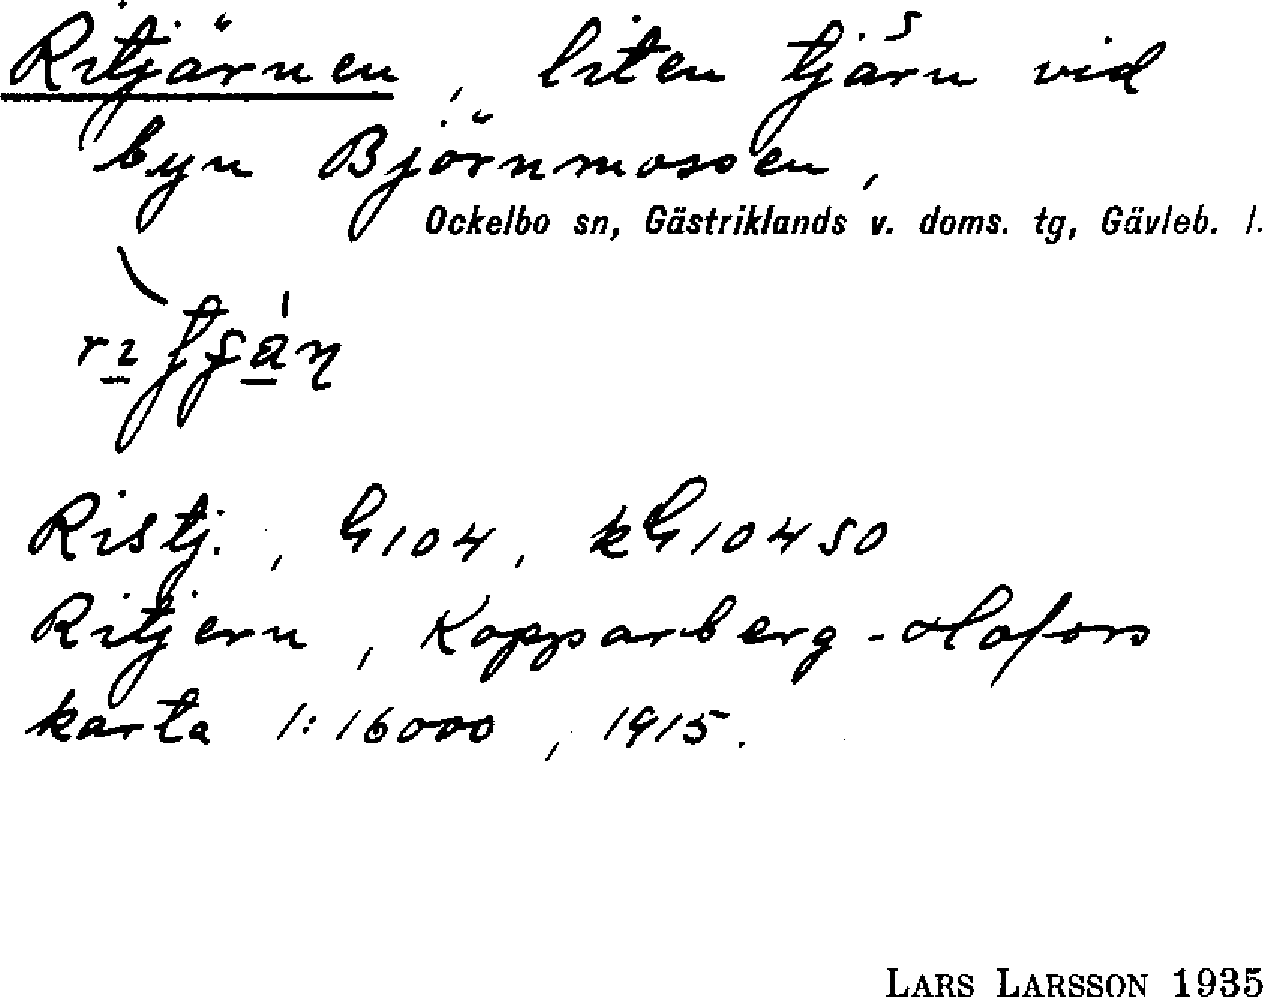 Ritjärnen, liten tjärn vid
byn Björnmossen,
Ockelbo sn, Gästriklands v. doms. tg, Gävleb. l.
Ristj., G104, kG10450
Ritjern, Kopparberg-Hofors
karta 1:16000, 1915.
LARS LARSSON 1935